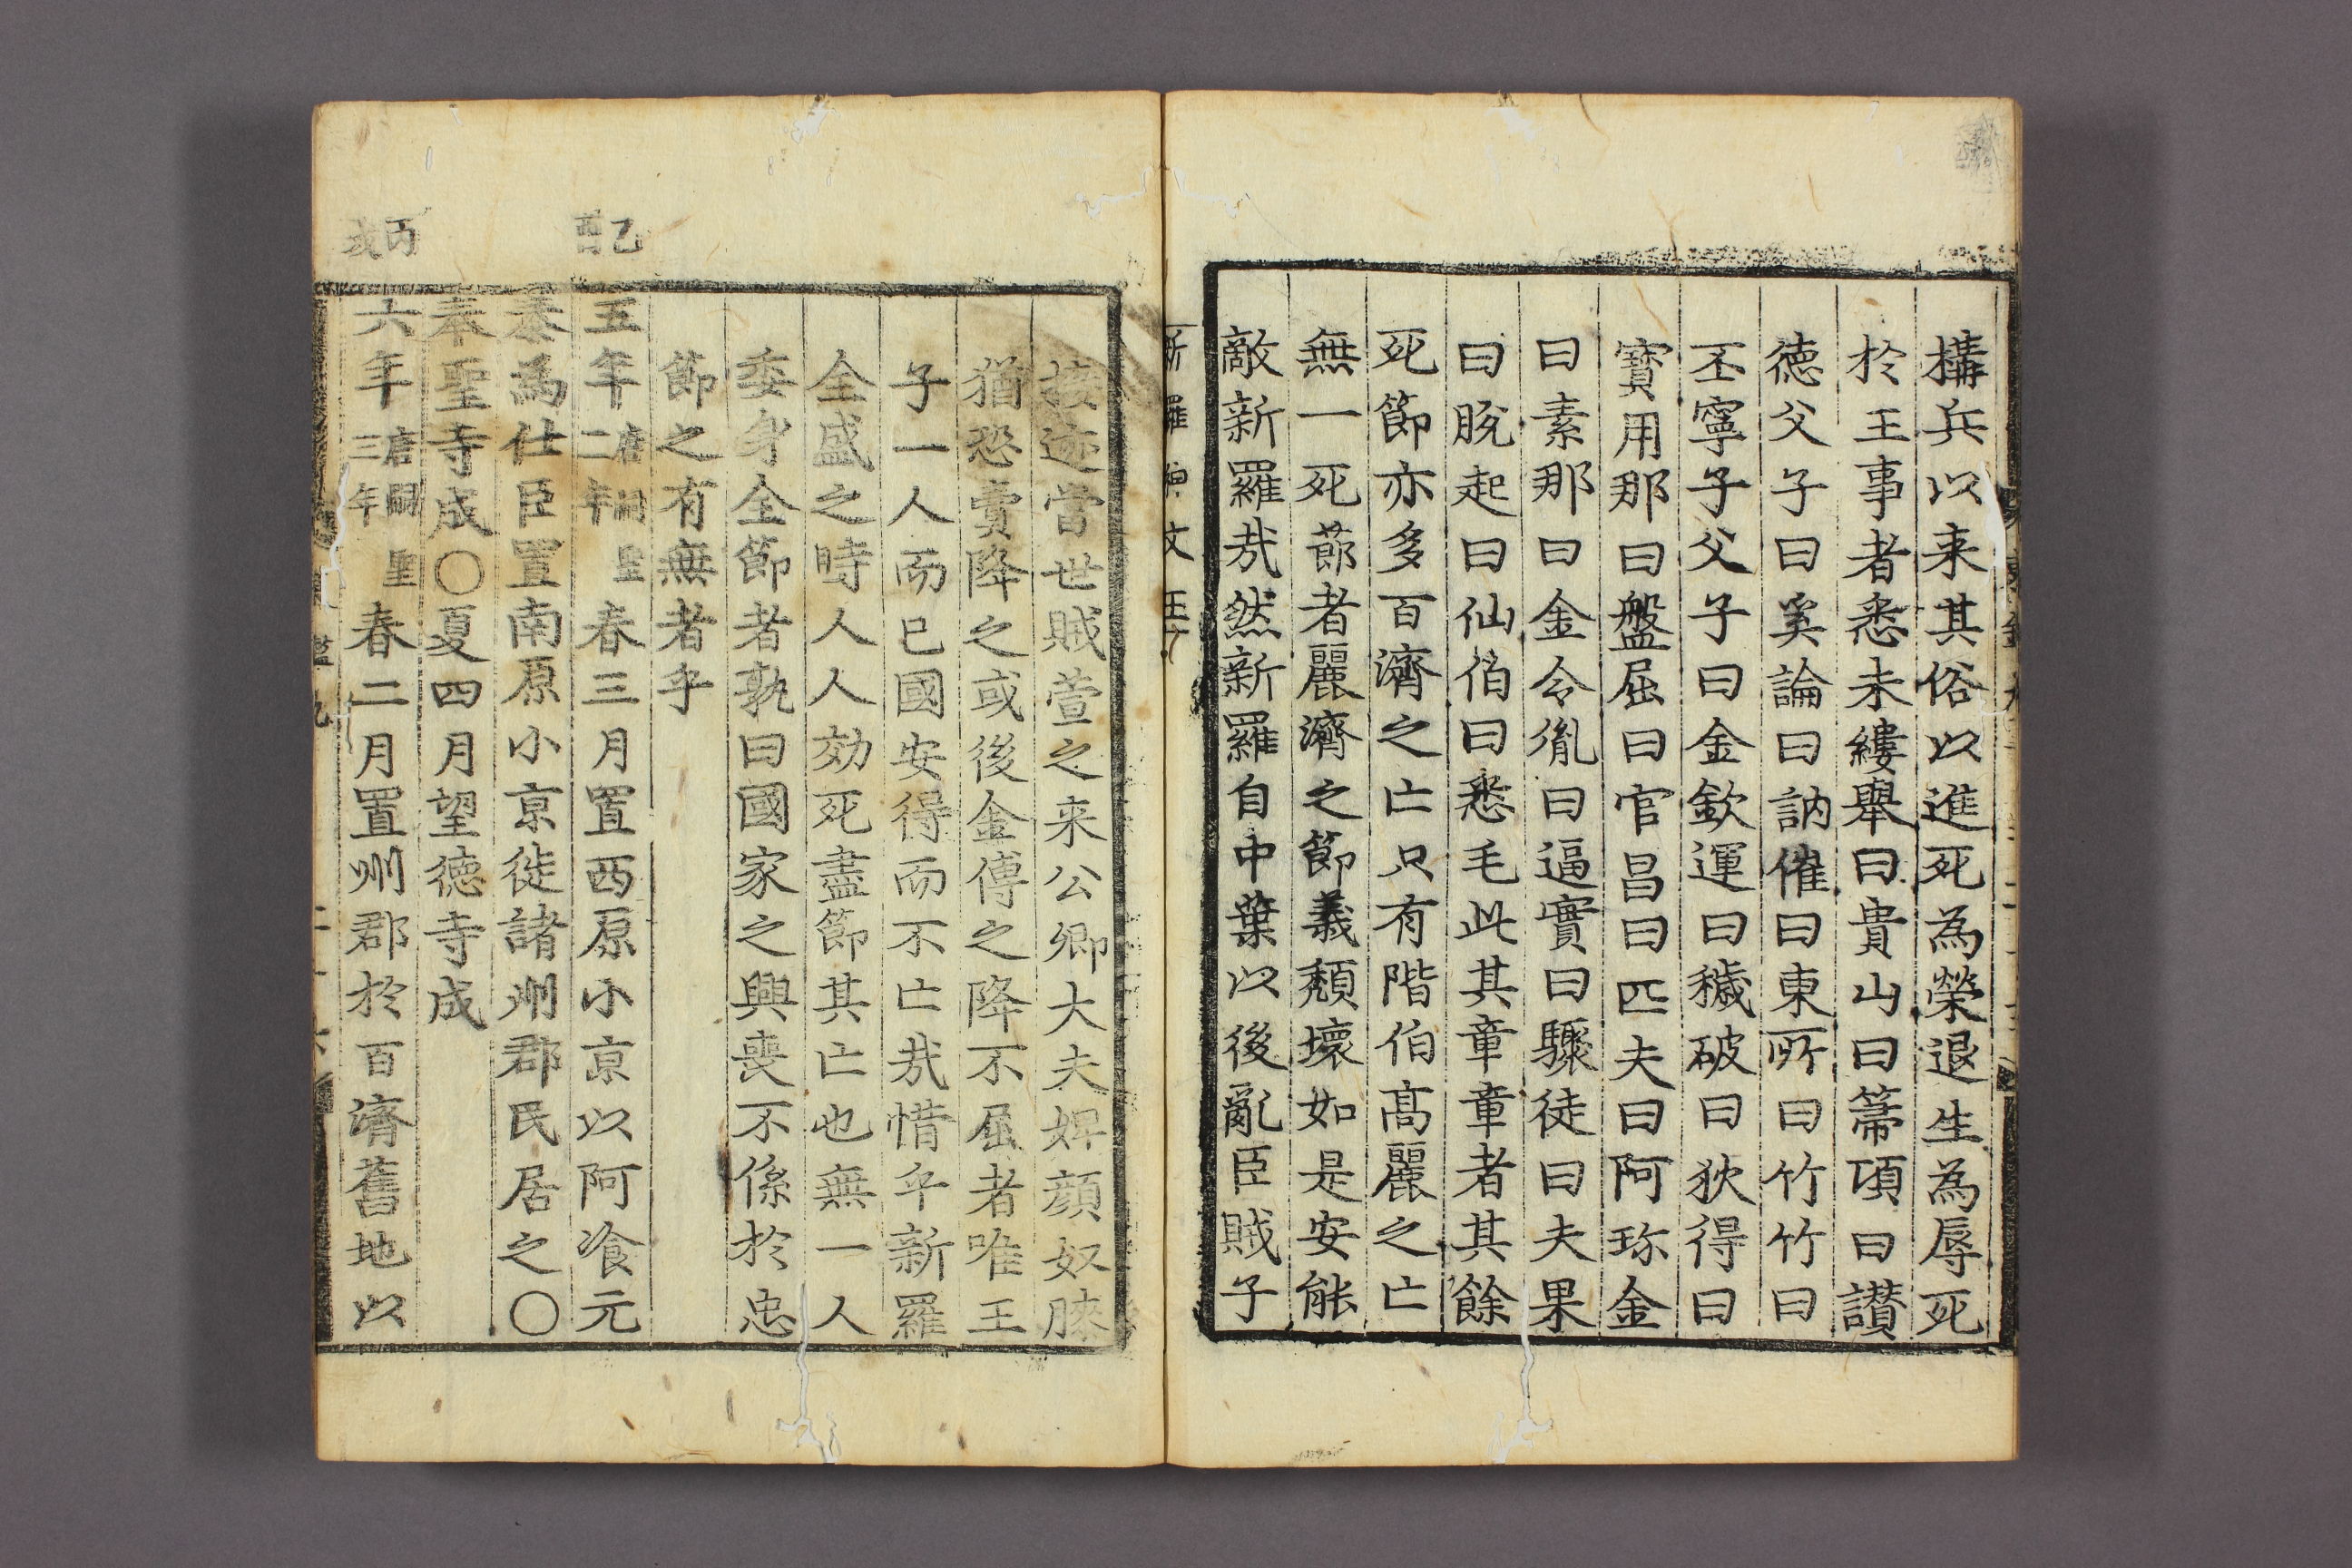 構兵以来其俗以進死為榮退生為辱死
於王事者悉未縷舉曰貴山曰箒項曰讃
徳父子曰奚論曰訥催曰東所曰竹竹曰
丕寧子父子曰金欽運曰穢破曰狄得曰
寳用那曰盤屈曰官昌曰匹夫曰阿珎金
曰素那曰金令胤曰逼實曰驟徒曰夫果
曰脱起曰仙伯曰悉毛此其章章者其餘
死節亦多百濟之亡只有階伯髙麗之亡
無一死莭者麗濟之節義頽壞如是安能
敵新羅㦲然新羅自中葉以後亂臣賊子
新羅 文王
接迹當世賊萱之来公卿大夫婢顔奴膝
猶恐賣降之或後金傅之降不屈者唯王
子一人而已國安得而不亡㦲惜乎新羅
全盛之時人人効死盡節其亡也無一人
委身全節者孰曰國家之興喪不係於忠
節之有無者乎
乙酉
五年唐嗣聖二年春三月置西原小亰以阿飡元
泰為仕臣置南原小亰徙諸州郡民居之〇
奉聖寺成〇夏四月望徳寺成
丙戌
六年唐嗣聖三年春二月置州郡於百濟舊地以